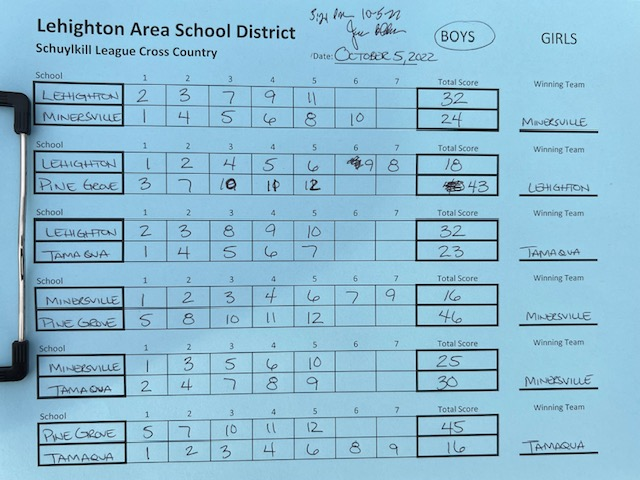 Lehighton Area School District
5:21 PM 10-5-22
BOYS
GIRLS
Schuylkill League Cross Country
Date: OCTOBER 5, 2022
School 1 2 3 4 5 6 7 Total Score Winning Team
LEHIGHTON 2 3 7 9 11 32
MINERSVILLE 1 4 5 6 8 10 24 MINERSVILLE
School 1 2 3 4 5 6 7 Total Score Winning Team
LEHIGHTON 1 2 4 5 6 9 8 18
PINE GROVE 3 7 10 11 12 43 LEHIGHTON
School 1 2 3 4 5 6 7 Total Score Winning Team
LEHIGHTON 2 3 8 9 10 32
TAMAQUA 1 4 5 6 7 23 TAMAQUA
School 1 2 3 4 5 6 7 Total Score Winning Team
MINERSVILLE 1 2 3 4 6 7 9 16
PINE GROVE 5 8 10 11 12 46 MINERSVILLE
School 1 2 3 4 5 6 7 Total Score Winning Team
MINERSVILLE 1 3 5 6 10 25
TAMAQUA 2 4 7 8 9 30 MINERSVILLE
School 1 2 3 4 5 6 7 Total Score Winning Team
PINE GROVE 5 7 10 11 12 45
TAMAQUA 1 2 3 4 6 8 9 16 TAMAQUA